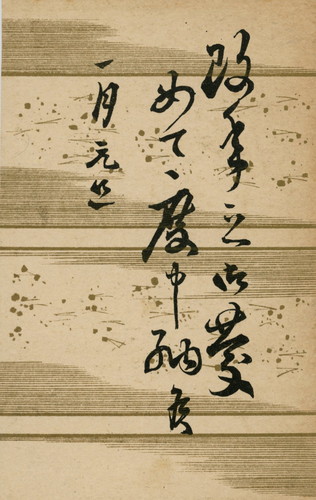 改年之御慶
めで度申納候
一月元旦